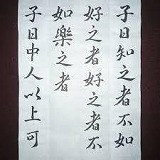 子曰知之者不如
好之者好之者不
如樂之者
子曰中人以上可